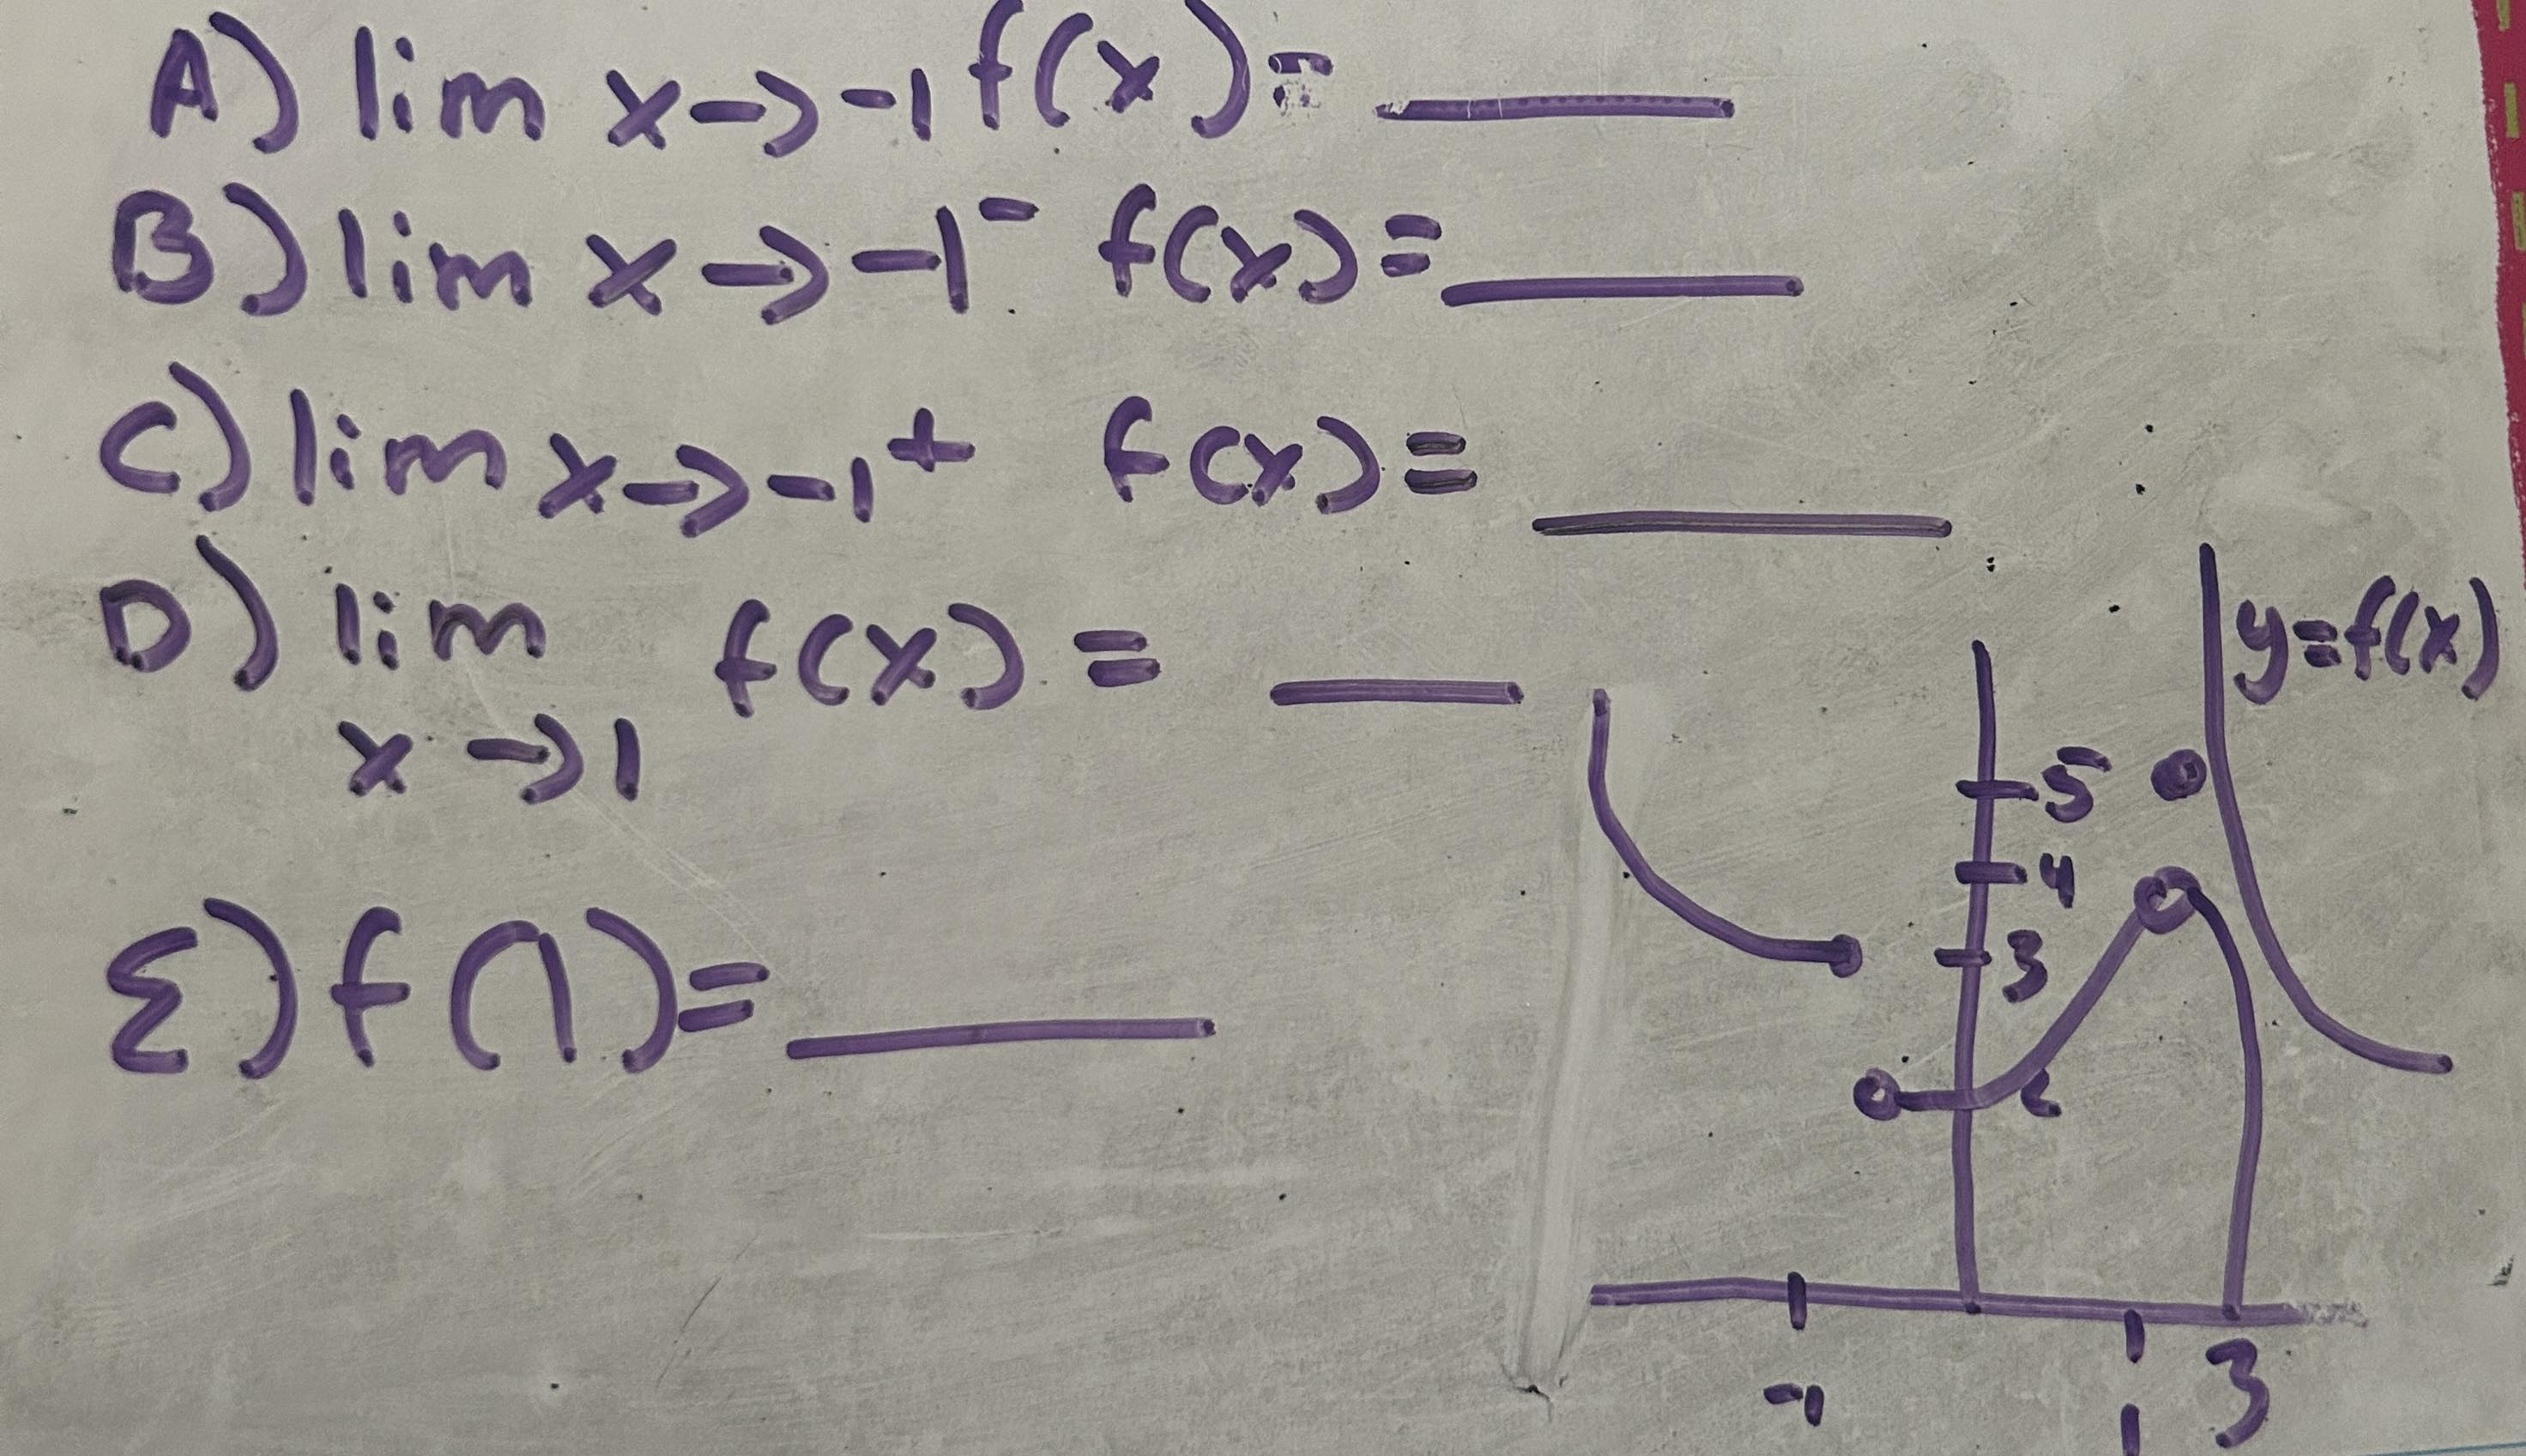 A) lim x→-1 f(x)= ____
B) lim x→-1⁻ f(x)= ____
C) lim x→-1⁺ f(x)= ____
D) lim f(x) = ____
x→1
E) f(1)= ____
y=f(x)
5
4
3
2
-1
1
3